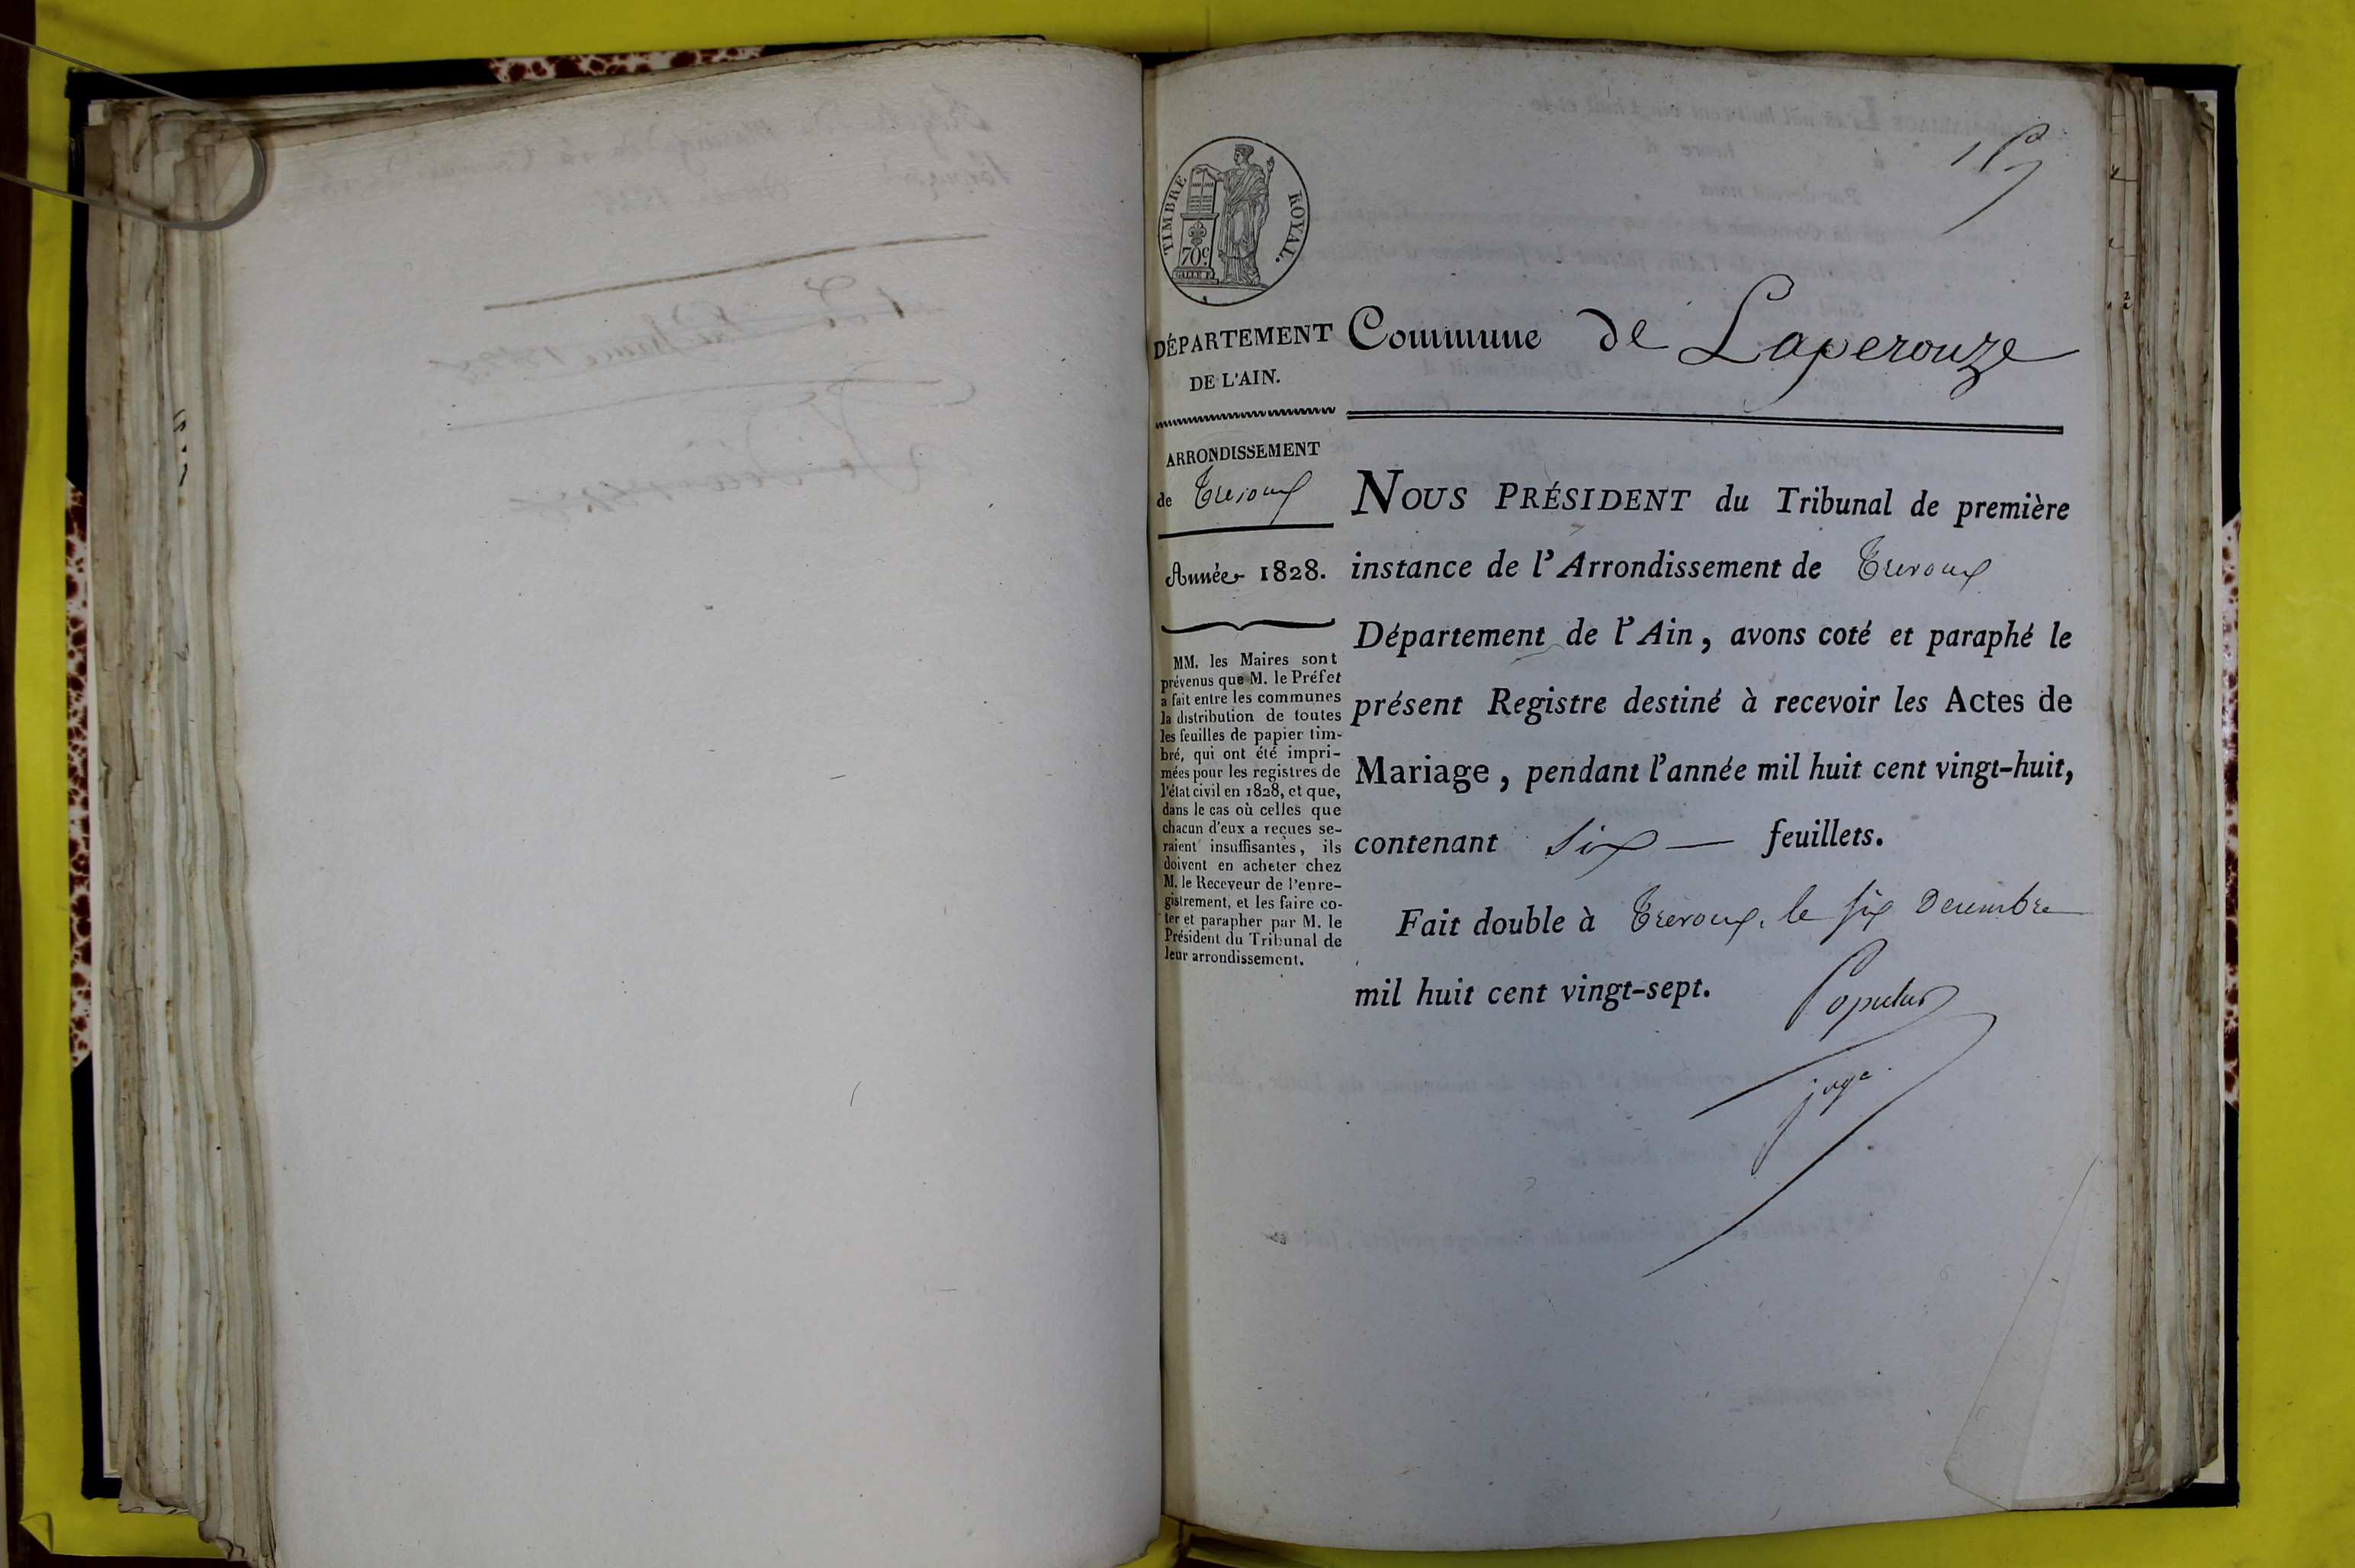 TIMBRE ROYAL.
70c
DÉPARTEMENT
DE L'AIN.
ARRONDISSEMENT
de Trevoux
Année 1828.
MM. les Maires sont
prévenus que M. le Préfet
a fait entre les communes
la distribution de toutes
les feuilles de papier tim-
bré, qui ont été impri-
mées pour les registres de
l'état civil en 1828, et que,
dans le cas où celles que
chacun d'eux a reçues se-
raient insuffisantes, ils
doivent en acheter chez
M. le Receveur de l'enre-
gistrement, et les faire co-
ter et parapher par M. le
Président du Tribunal de
leur arrondissement.
Commune de Laperouze
NOUS PRÉSIDENT du Tribunal de première
instance de l'Arrondissement de Trevoux
Département de l'Ain, avons coté et paraphé le
présent Registre destiné à recevoir les Actes de
Mariage, pendant l'année mil huit cent vingt-huit,
contenant six — feuillets.
Fait double à Trevoux, le six Decembre
mil huit cent vingt-sept.
Populus
juge